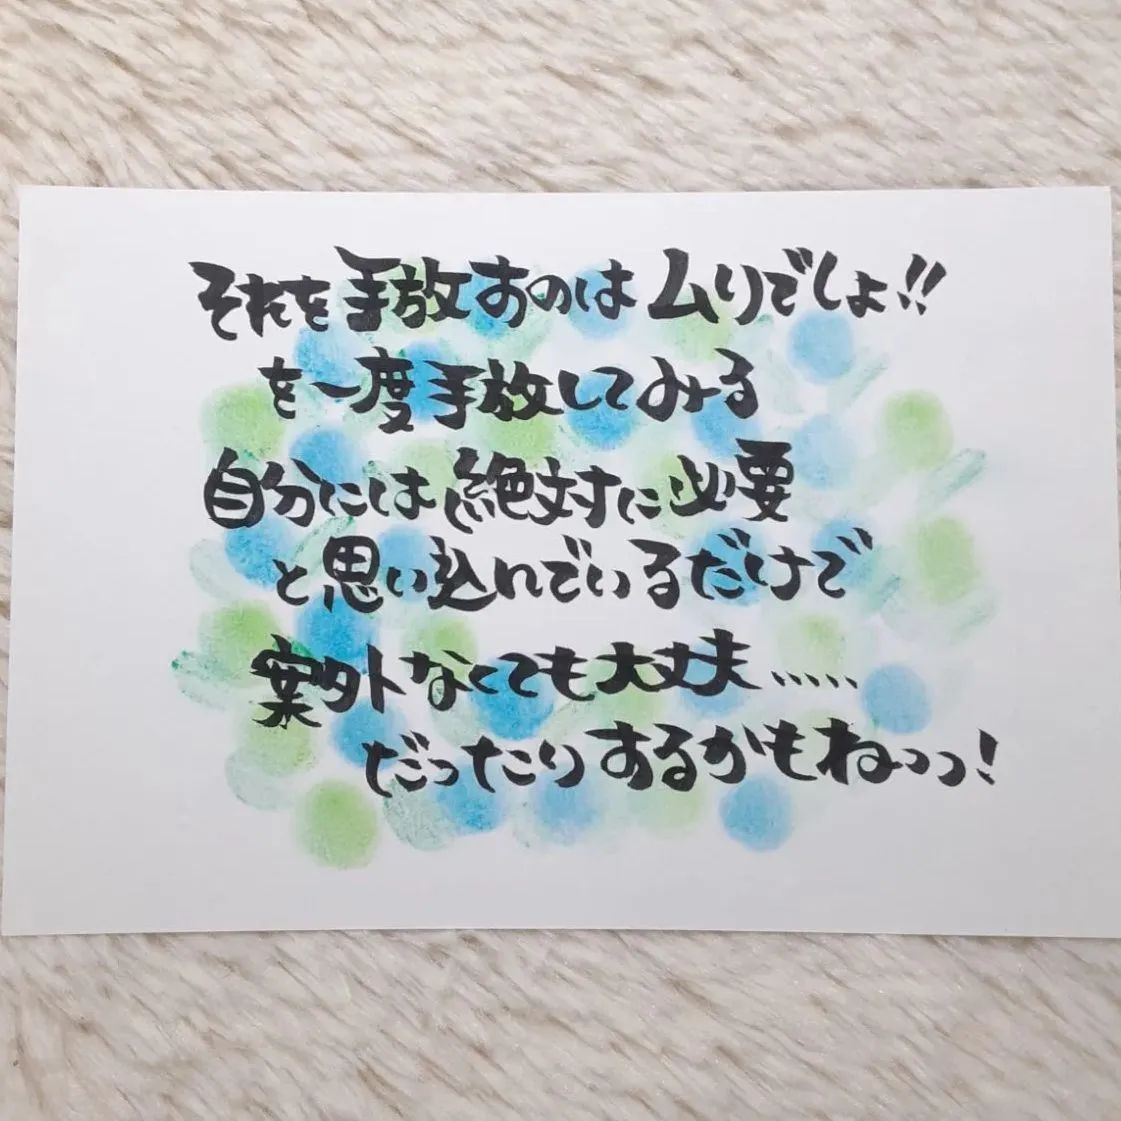 それを手放すのはムリでしょ!!
を一度手放してみる
自分には絶対に必要
と思い込んでいるだけで
案外なくても大丈夫.....
だったりするかもねっっ!